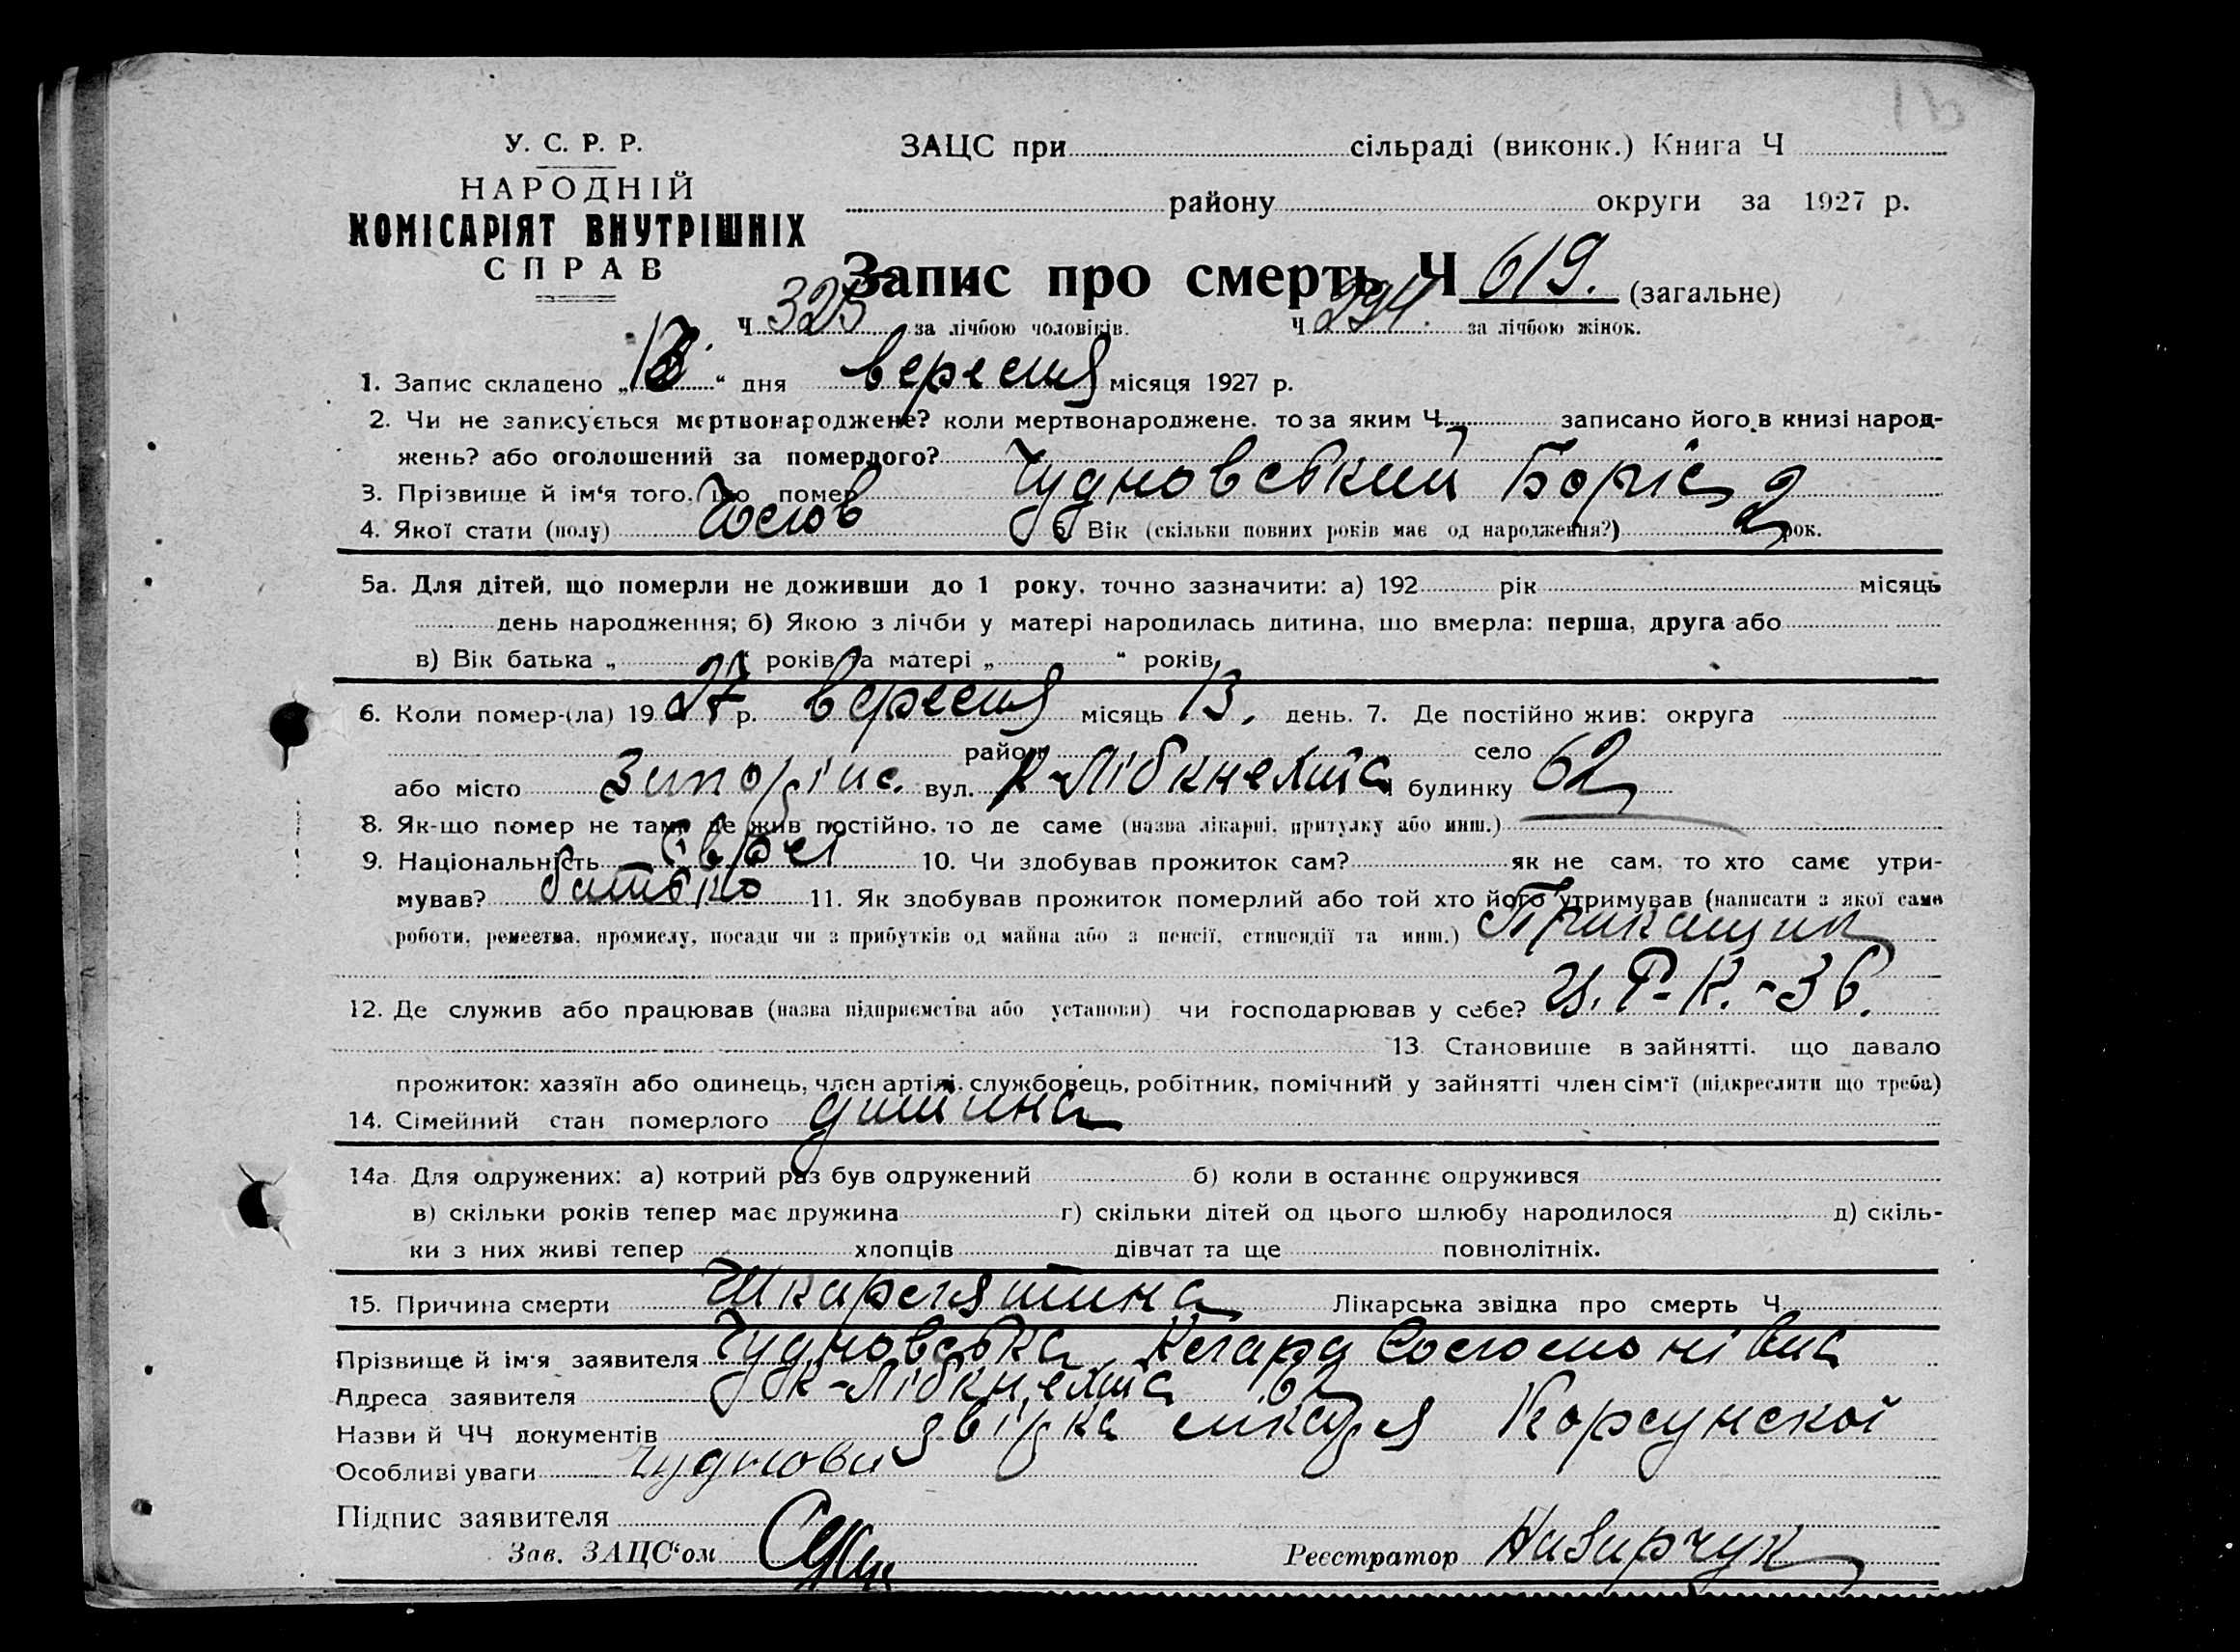 У. С. Р. Р.
НАРОДНІЙ
КОМІСАРІЯТ ВНУТРІШНІХ
СПРАВ
ЗАЦС при сільраді (виконк.) Книга Ч
району округи за 1927 р.
Запис про смерть Ч 619. (загальне)
Ч 325 за лічбою чоловіків. Ч 294. за лічбою жінок.
1. Запис складено „ “ дня вересня місяця 1927 р.
2. Чи не записується мертвонароджене? коли мертвонароджене, то за яким Ч. записано його в книзі народ-
жень? або оголошений за померлого?
3. Прізвище й ім‘я того, що помер Чудновський Боріс
4. Якої стати (полу) Чолов 5. Вік (скільки повних років має од народження?) 2 рок.
5а. Для дітей, що померли не доживши до 1 року, точно зазначити: а) 192 рік місяць
день народження; б) Якою з лічби у матері народилась дитина, що вмерла: перша, друга або
в) Вік батька „ “ років та матері „ “ років
6. Коли помер-(ла) 1927 р. вересня місяць 13. день. 7. Де постійно жив: округа
район село
або місто Запоріж. вул. К-Лібкнехта будинку 62
8. Як-що помер не там, де жив постійно, то де саме (назва лікарні, притулку або инш.)
9. Національність Єврей 10. Чи здобував прожиток сам? як не сам, то хто саме утри-
мував? батько 11. Як здобував прожиток померлий або той хто його утримував (написати з якої саме
роботи, ремества, промислу, посади чи з прибутків од майна або з пенсії, стипендії та инш.) Прикащик
12. Де служив або працював (назва підприємства або установи) чи господарював у себе? Ц.Р.К.-36.
13. Становище в зайнятті, що давало
прожиток: хазяїн або одинець, член артілі, службовець, робітник, помічний у зайнятті член сім‘ї (підкреслити що треба)
14. Сімейний стан померлого дитина
14а. Для одружених: а) котрий раз був одружений б) коли в останнє одружився
в) скільки років тепер має дружина г) скільки дітей од цього шлюбу народилося д) скіль-
ки з них живі тепер хлопців дівчат та ще повнолітніх.
15. Причина смерти Шкарлятина Лікарська звідка про смерть Ч.
Прізвище й ім‘я заявителя Чудновська Клара Соломонівна
Адреса заявителя К-Лібкнехта 62
Назви й ЧЧ документів звідка лікаря Корсунскої
Особливі уваги
Підпис заявителя
Зав. ЗАЦС‘ом Реєстратор